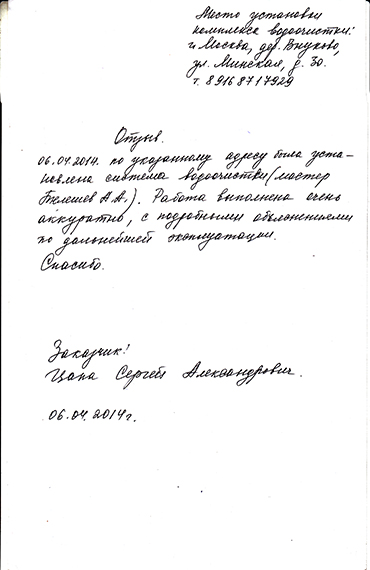 Место установки
комплекса водоочистки:
г. Москва, дер. Внуково,
ул. Минская, д. 30.
т. 89168717929
Отзыв.
06.04.2014. по указанному адресу была уста-
новлена система водоочистки (мастер
А.А.). Работа выполнена очень
аккуратно, с подробными объяснениями
по дальнейшей эксплуатации.
Спасибо.
Заказчик:
Цапа Сергей Александрович.
06.04.2014г.